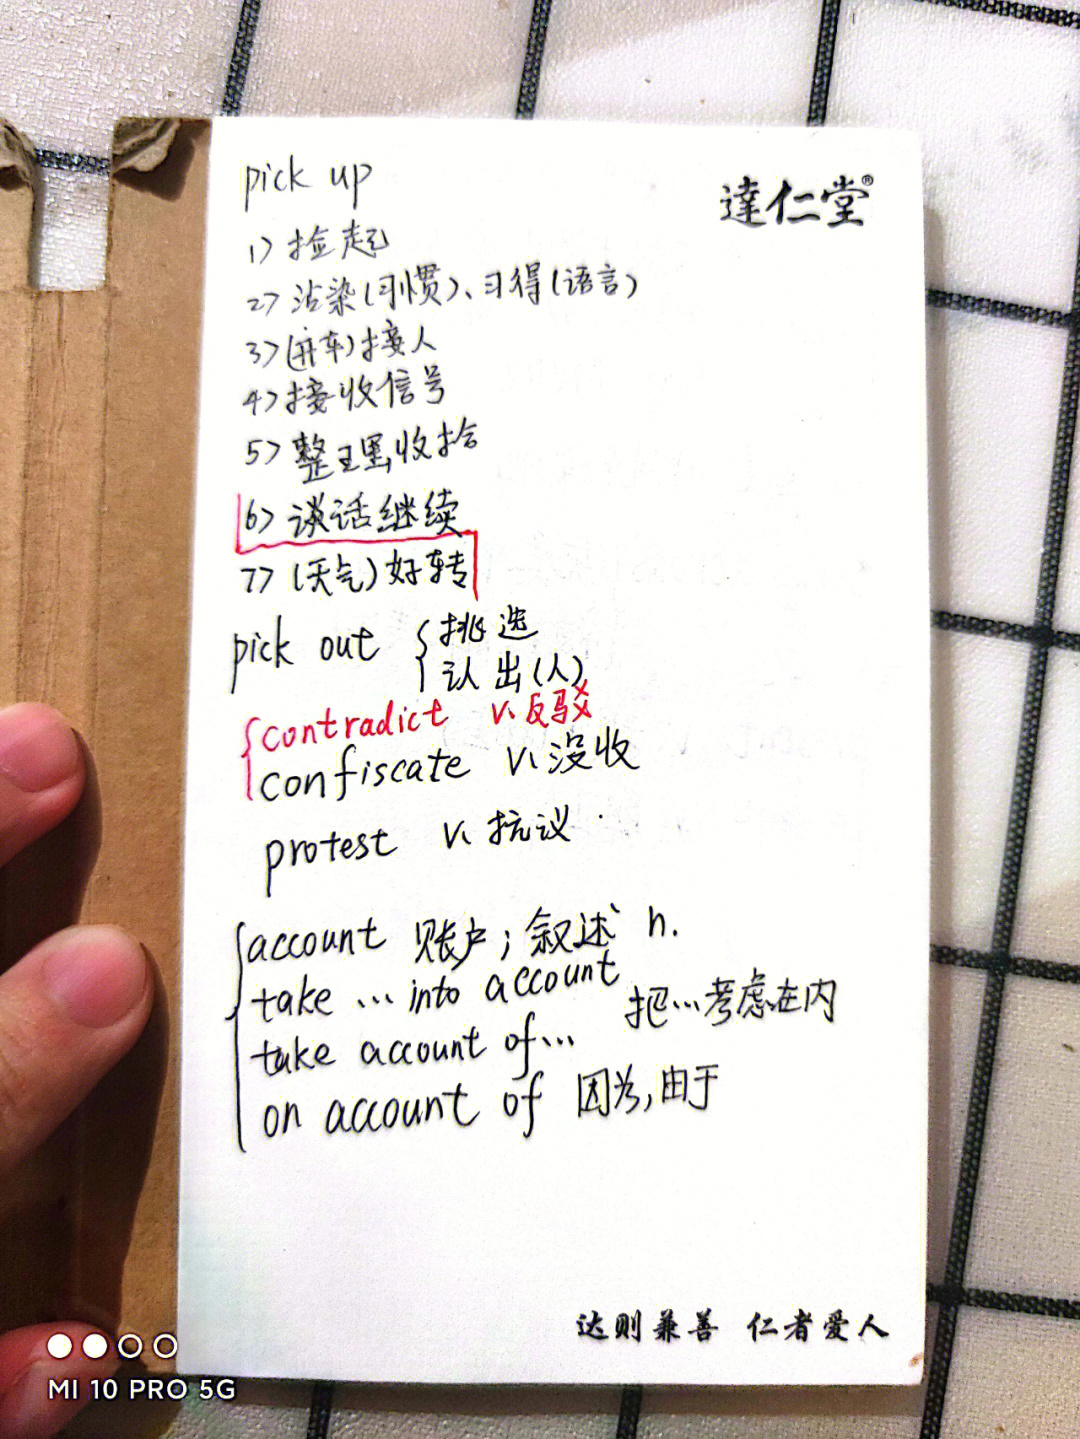 達仁堂®
pick up
1> 捡起
2> 沾染(习惯)、习得(语言)
3> (开车)接人
4> 接收信号
5> 整理,收拾
6> 谈话继续
7> (天气)好转
pick out { 挑选
认出(人)
contradict v. 反驳
confiscate v. 没收
protest v. 抗议
account 账户; 叙述 n.
take ... into account
把...考虑在内
take account of...
on account of 因为,由于
达则兼善 仁者爱人
MI 10 PRO 5G